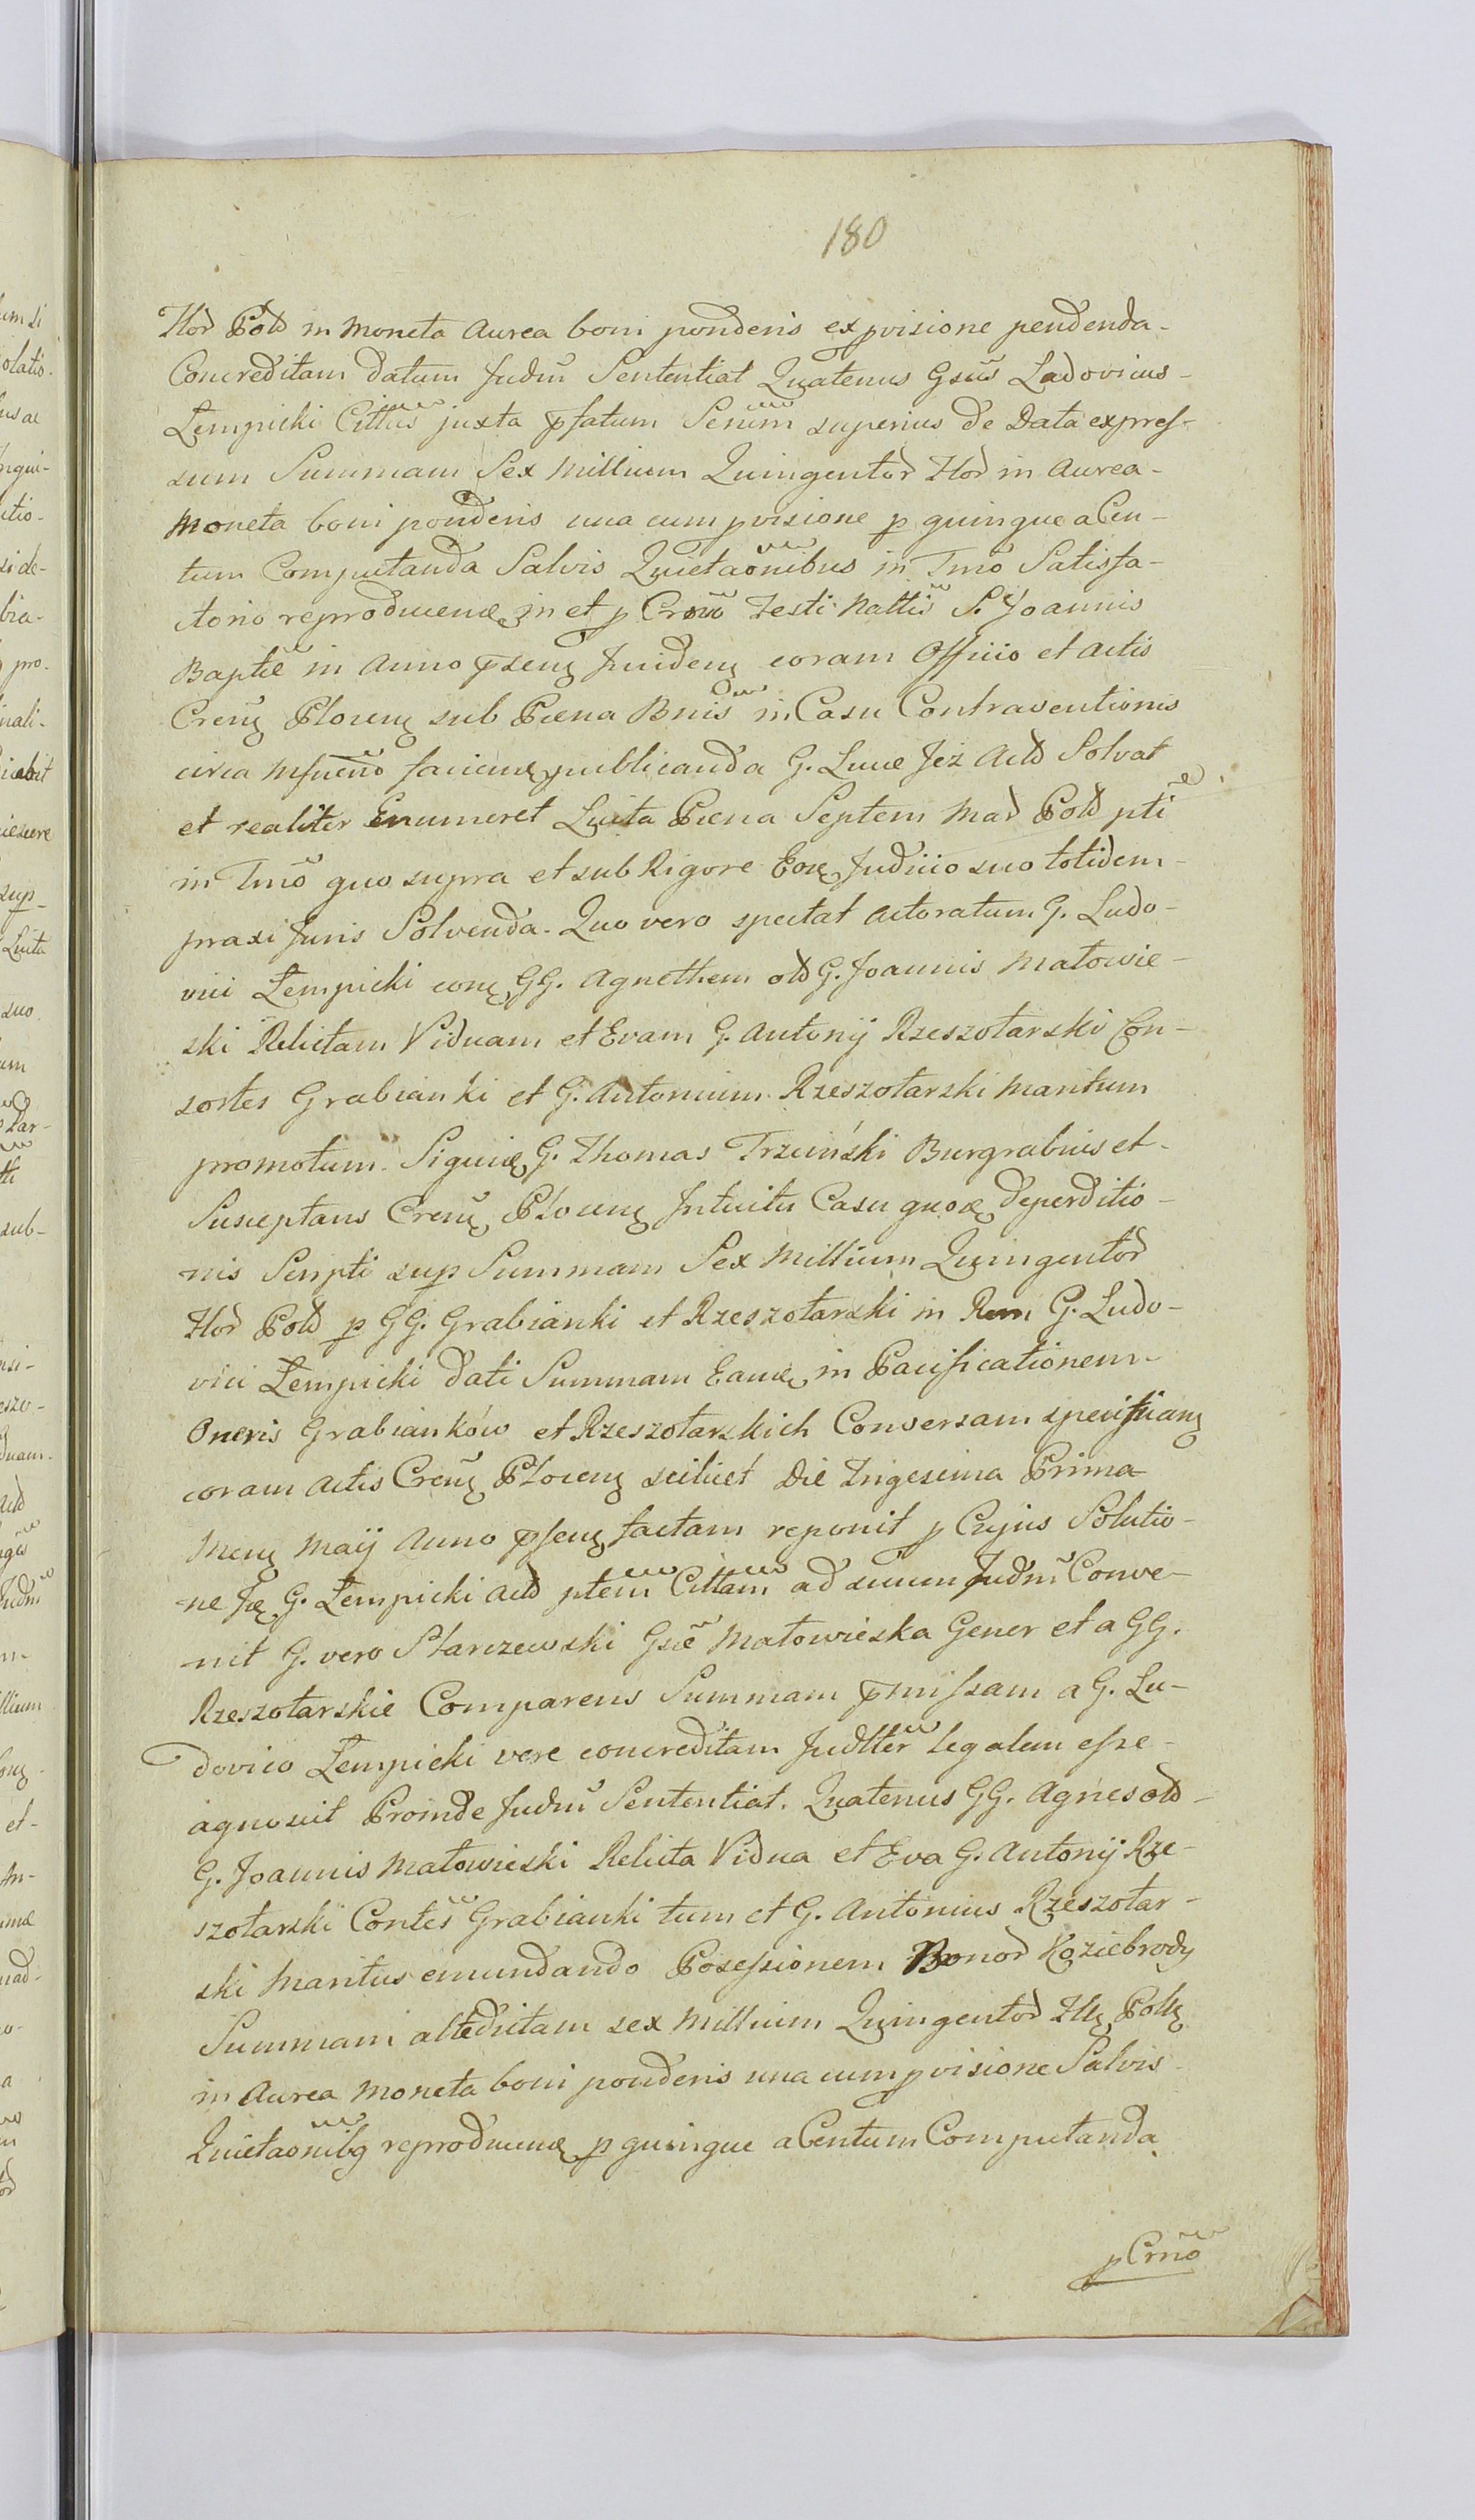 180
Flor̃ Pold in Moneta Aurea boni ponderis ex pvisione pendenda-
Concreditam datum Judm̃ Sententiat Quatenus Gsũs Ludovicus-
Łempicki Citt̃us juxta pfatum Serim̃ superius de Data expres-
sum Summam Sex Millium Quingentor Flor in Aurea-
Moneta boni ponderis una cum pvisione p quinque a Cen-
tum Computanda Salvis Quietaõnibus in Tmõ Satisfa-
ctorio reproducenɖ in et p Crõ Festi Natt̃is S. Joannis
Baptæ̃ in Anno psenɖ Incidenɖ coram Officio et Actis
Creñɖ Plocenɖ sub Pæna Bnis̃ in Casu Contraventionis
circa faciend publicanda G. Lucæ Jeż Actõ Solvat
et realiter Enumeret Luita Pæna Septem Mar Pold pti
in Tmõ quo supra et sub Rigore Eorɖ Judicio suo totidem-
praxi Juris Solvenda. Quo vero spectat Actoratum G. Ludo-
vici Łempicki conɖ GG. Agnethem old G. Joannis Małowie-
ski Relictam Viduam et Evam G. Antonij Rzeszotarski Con-
sortes Grabianki et G. Antonium Rzeszotarski Maritum
promotum. G. Thomas Trzciński Burgrabius et-
Susceptans Creñɖ Plocenɖ Intuitu Casu deperditio-
nis Scripti sup Summam Sex Millium Quingentor
Flor Pold p GG. Grabianki et Rzeszotarski in Rem G. Ludo-
vici Łempicki dati Summam Eamɖ in Pacificationem-
Oneris Grabianków et Rzeszotarskich Conversam
coram Actis Creñɖ Plocenɖ scilicet Die Trigesima Prima
Menɖ Maij Anno psenɖ factam reponit p Cujus Solutio-
ne G. Łempicki Actõ ptem̃ Citt̃am ad suum Judm̃ Conve-
nit G. vero Starczewski Gsæ̃ Małowieska Gener et a GG.
Rzeszotarskie Comparens Summam pmissam a G. Lu-
dovico Łempicki vere concreditam Judlter̃ legalem esse-
agnovit Proinde Judm̃ Sententiat. Quatenus GG. Agnes old-
G. Joannis Małowieski Relicta Vidua et Eva G. Antonij Rze-
szotarski Contes̃ Grabianki tum et G. Antonius Rzeszotar-
ski Maritus emundando Possessionem Bonor Koziebrody
Summam altedictam sex Millium Quingentor Fllɖ Pollɖ
in Aurea Moneta boni ponderis una cum pvisione Salvis-
Quietaõnibɖ reproducenɖ p quinque a Centum Computanda
p Crnõ